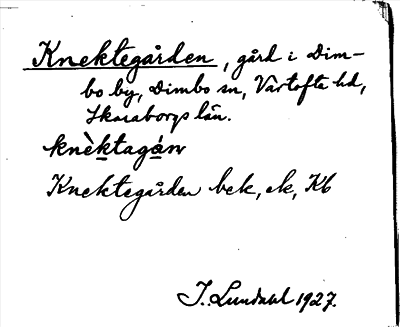 Knektegården, gård i Dim-
bo by, Dimbo sn, Vartofta hd,
Skaraborgs län.
knèktagán
Knektegården bek, ek, Kb
J. Lundahl 1927.